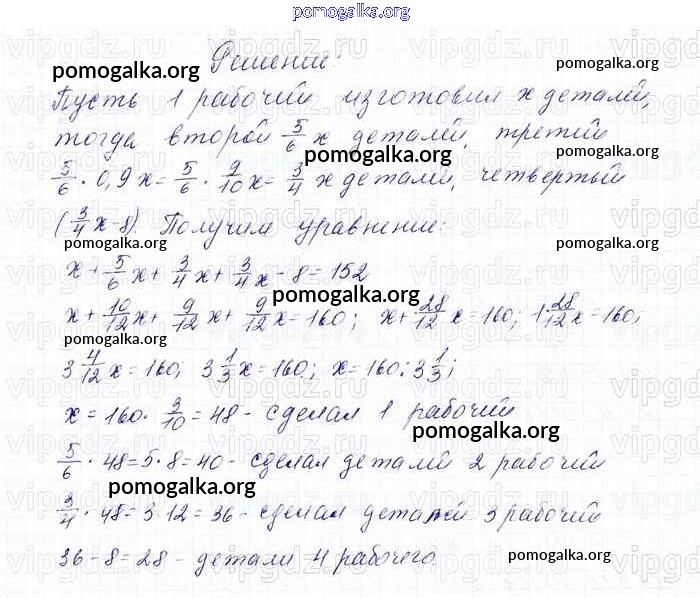 pomogalka.org
Решение:
pomogalka.org pomogalka.org
Пусть 1 рабочий изготовил x деталей,
тогда второй 5/6 x деталей, третий
pomogalka.org pomogalka.org
5/6 · 0,9x = 5/6 · 9/10 x = 3/4 x деталей, четвертый
(3/4 x - 8). Получим уравнение:
pomogalka.org pomogalka.org
x + 5/6 x + 3/4 x + 3/4 x - 8 = 152
pomogalka.org
x + 10/12 x + 9/12 x + 9/12 x = 160; x + 28/12 x = 160; 1 28/12 x = 160;
3 4/12 x = 160; 3 1/3 x = 160; x = 160 : 3 1/3;
x = 160 · 3/10 = 48 - сделал 1 рабочий
pomogalka.org
5/6 · 48 = 5 · 8 = 40 - сделал деталей 2 рабочий
pomogalka.org
3/4 · 48 = 3 · 12 = 36 - сделал деталей 3 рабочий
36 - 8 = 28 - детали 4 рабочего.
pomogalka.org